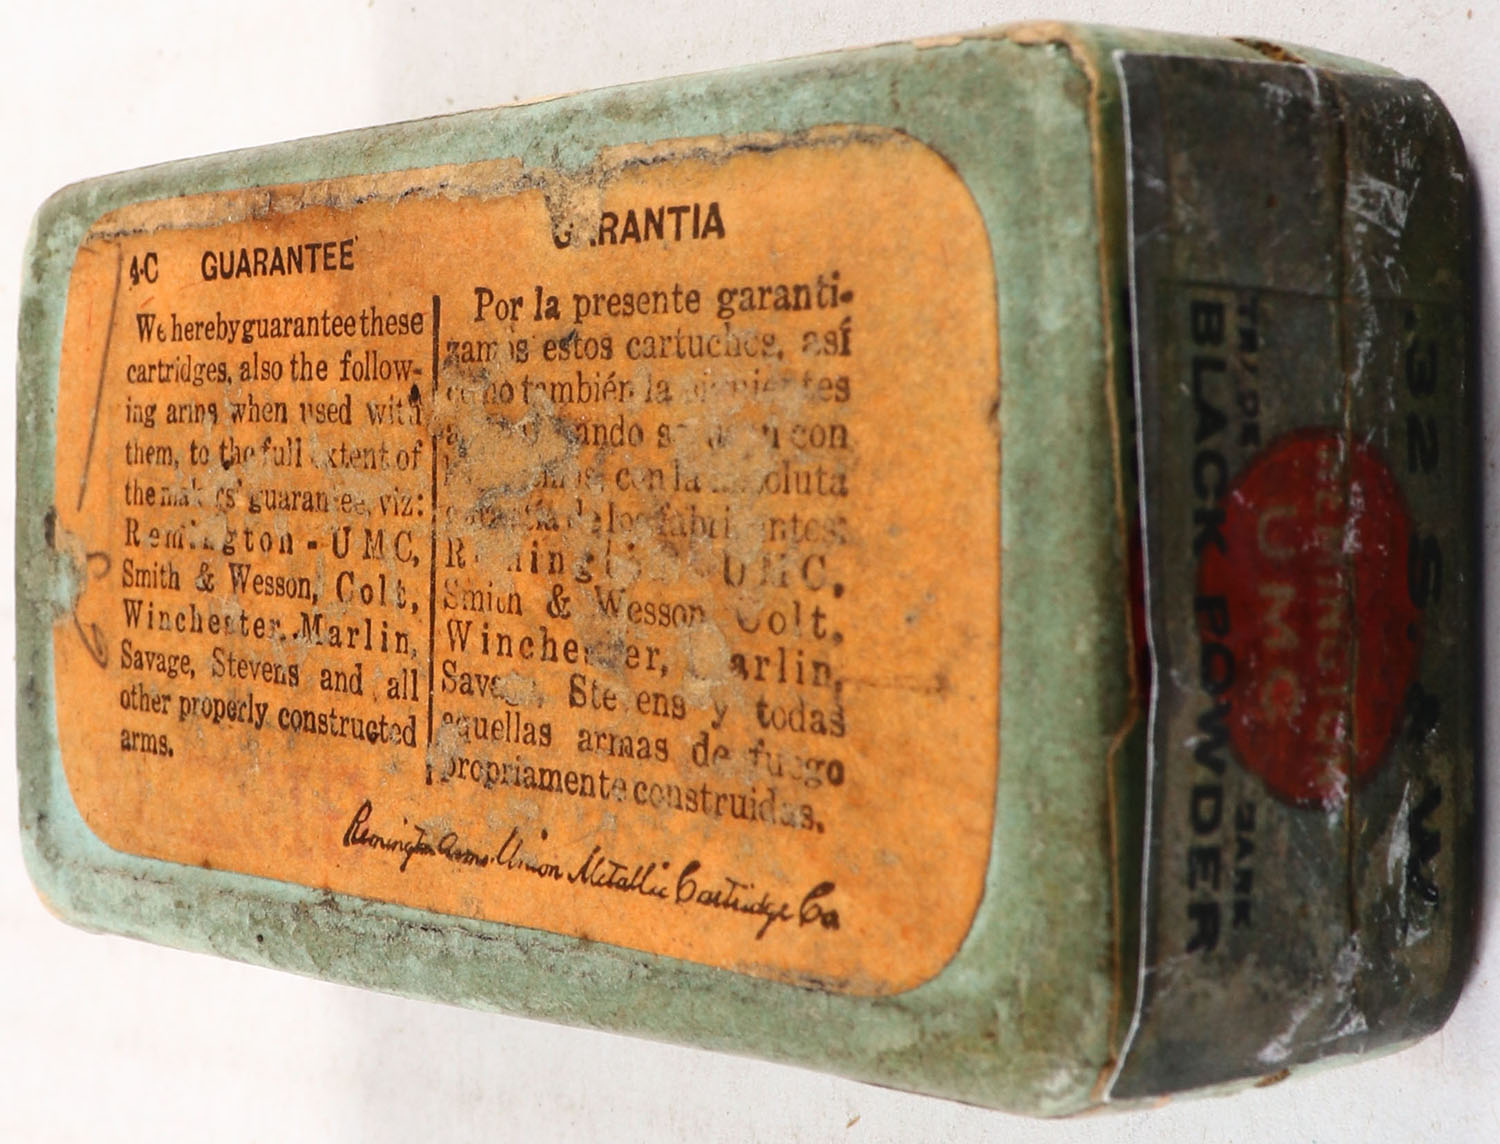 4-C GUARANTEE
We hereby guarantee these
cartridges, also the follow-
ing arms when used with
them, to the full extent of
the makers' guarantee, viz:
Remington-UMC,
Smith & Wesson, Colt,
Winchester, Marlin,
Savage, Stevens and all
other properly constructed
arms.
GARANTIA
Por la presente garanti-
zamos estos cartuchos, así
como también la siguientes
con
con la absoluta
garantía de los fabricantes:
Remington-UMC,
Smith & Wesson Colt,
Winchester, Marlin,
Savage, Stevens y todas
aquellas armas de fuego
propriamente construidas.
Remington Arms Union Metallic Cartridge Co
.32 S & W
REMINGTON
UMC
TRADE MARK
BLACK POWDER